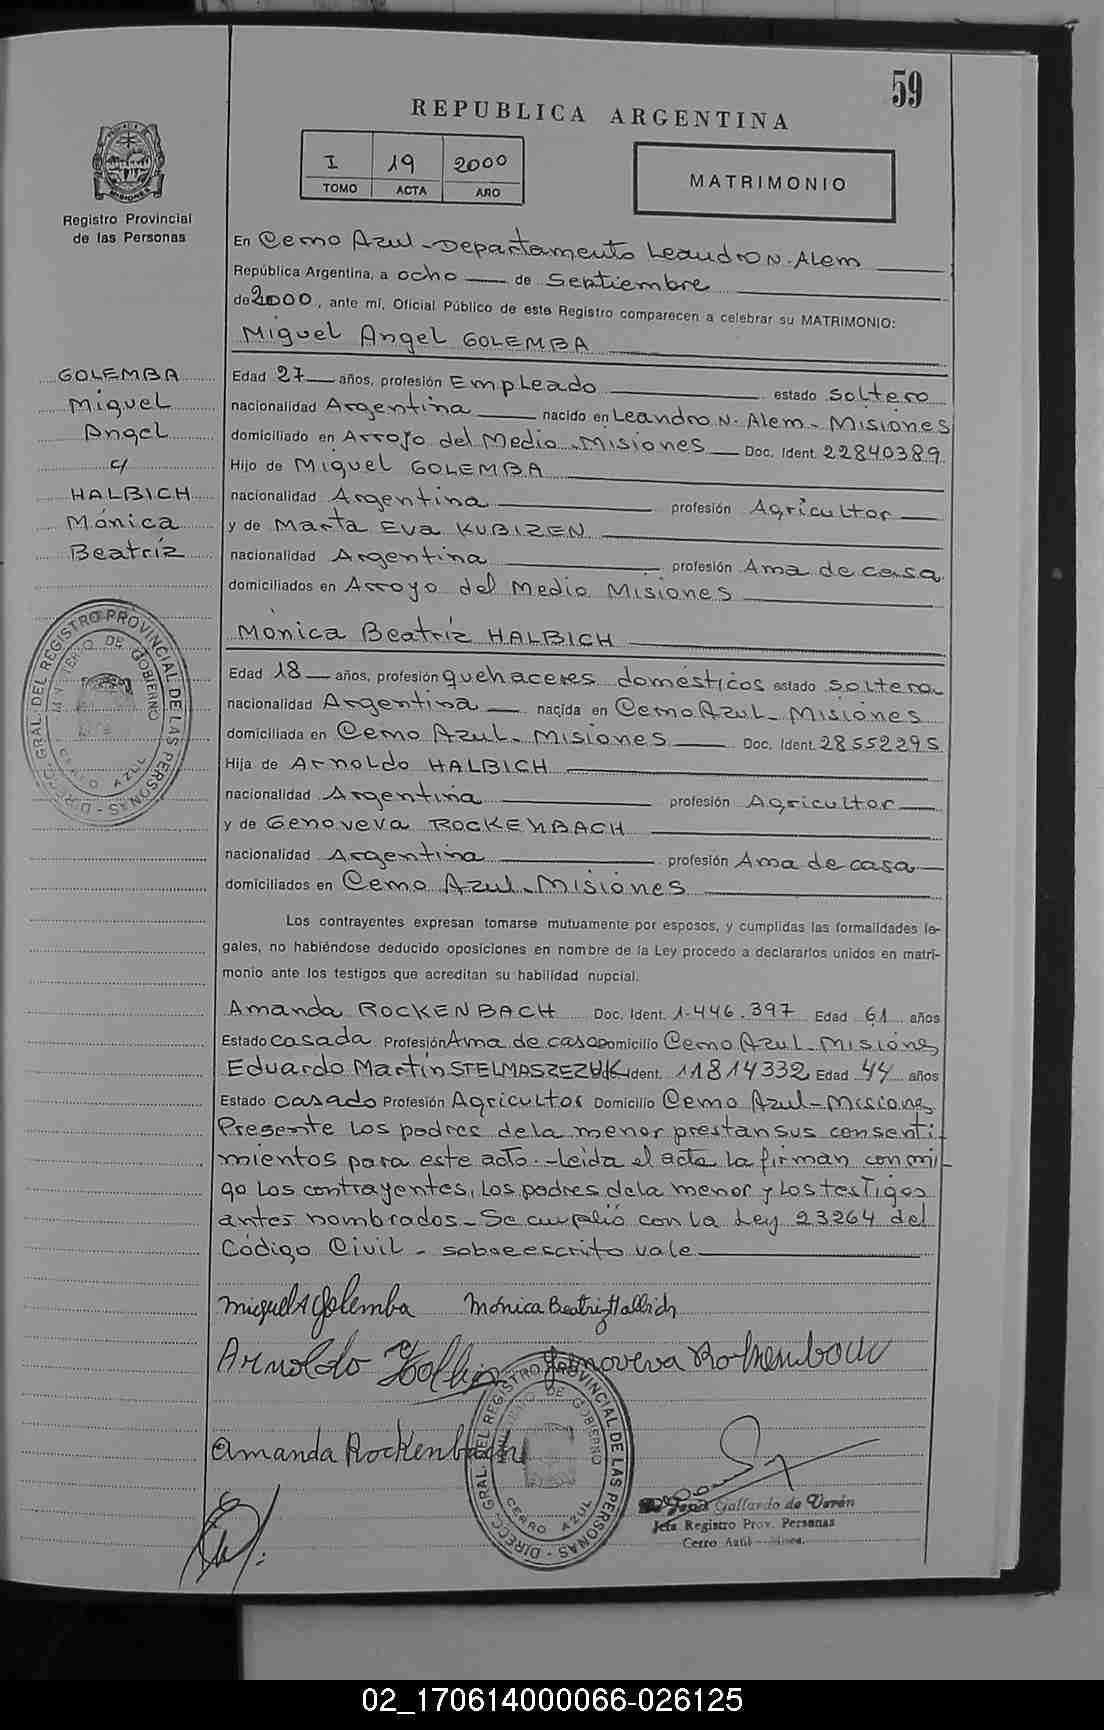 59
REPUBLICA ARGENTINA
I 19 2000
TOMO ACTA AÑO
MATRIMONIO
Registro Provincial
de las Personas
En Cerro Azul - Departamento Leandro N. Alem
República Argentina, a ocho de Septiembre
de 2000, ante mí, Oficial Público de este Registro comparecen a celebrar su MATRIMONIO:
Miguel Angel GOLEMBA
GOLEMBA
Miguel
Angel
c/
HALBICH
Mónica
Beatríz
Edad 27 años, profesión Empleado estado soltero
nacionalidad Argentina nacido en Leandro N. Alem - Misiones
domiciliado en Arroyo del Medio - Misiones Doc. Ident. 22840389
Hijo de Miguel GOLEMBA
nacionalidad Argentina profesión Agricultor
y de Marta Eva KUBIZEN
nacionalidad Argentina profesión Ama de casa
domiciliados en Arroyo del Medio Misiones
Mónica Beatríz HALBICH
Edad 18 años, profesión quehaceres domésticos estado soltera
nacionalidad Argentina nacida en Cerro Azul - Misiones
domiciliada en Cerro Azul - Misiones Doc. Ident. 28552295
Hija de Arnoldo HALBICH
nacionalidad Argentina profesión Agricultor
y de Genoveva ROCKENBACH
nacionalidad Argentina profesión Ama de casa
domiciliados en Cerro Azul - Misiones
Los contrayentes expresan tomarse mutuamente por esposos, y cumplidas las formalidades le-
gales, no habiéndose deducido oposiciones en nombre de la Ley procedo a declararlos unidos en matri-
monio ante los testigos que acreditan su habilidad nupcial.
Amanda ROCKENBACH Doc. Ident. 1.446.397 Edad 61 años
Estado casada Profesión Ama de casa Domicilio Cerro Azul - Misiones
Eduardo Martín STELMASZEZUK Ident. 11814332 Edad 44 años
Estado casado Profesión Agricultor Domicilio Cerro Azul - Misiones
Presente los padres de la menor prestan sus consenti-
mientos para este acto. - Leída el acta la firman conmi-
go los contrayentes, los padres de la menor y los testigos
antes nombrados - Se cumplió con la Ley 23264 del
Código Civil - sobreescrito vale
Miguel A Golemba Mónica Beatriz Halbich
Arnoldo Halbich Genoveva Rockenbach
Amanda Rockenbach
DIRECC. GRAL. DEL REGISTRO PROVINCIAL DE LAS PERSONAS
MINISTERIO DE GOBIERNO
CERRO AZUL
DIRECC. GRAL. DEL REGISTRO PROVINCIAL DE LAS PERSONAS
MINISTERIO DE GOBIERNO
CERRO AZUL
Gallardo de Verón
Jefe Registro Prov. Personas
Cerro Azul - Mnes.
02_170614000066-026125